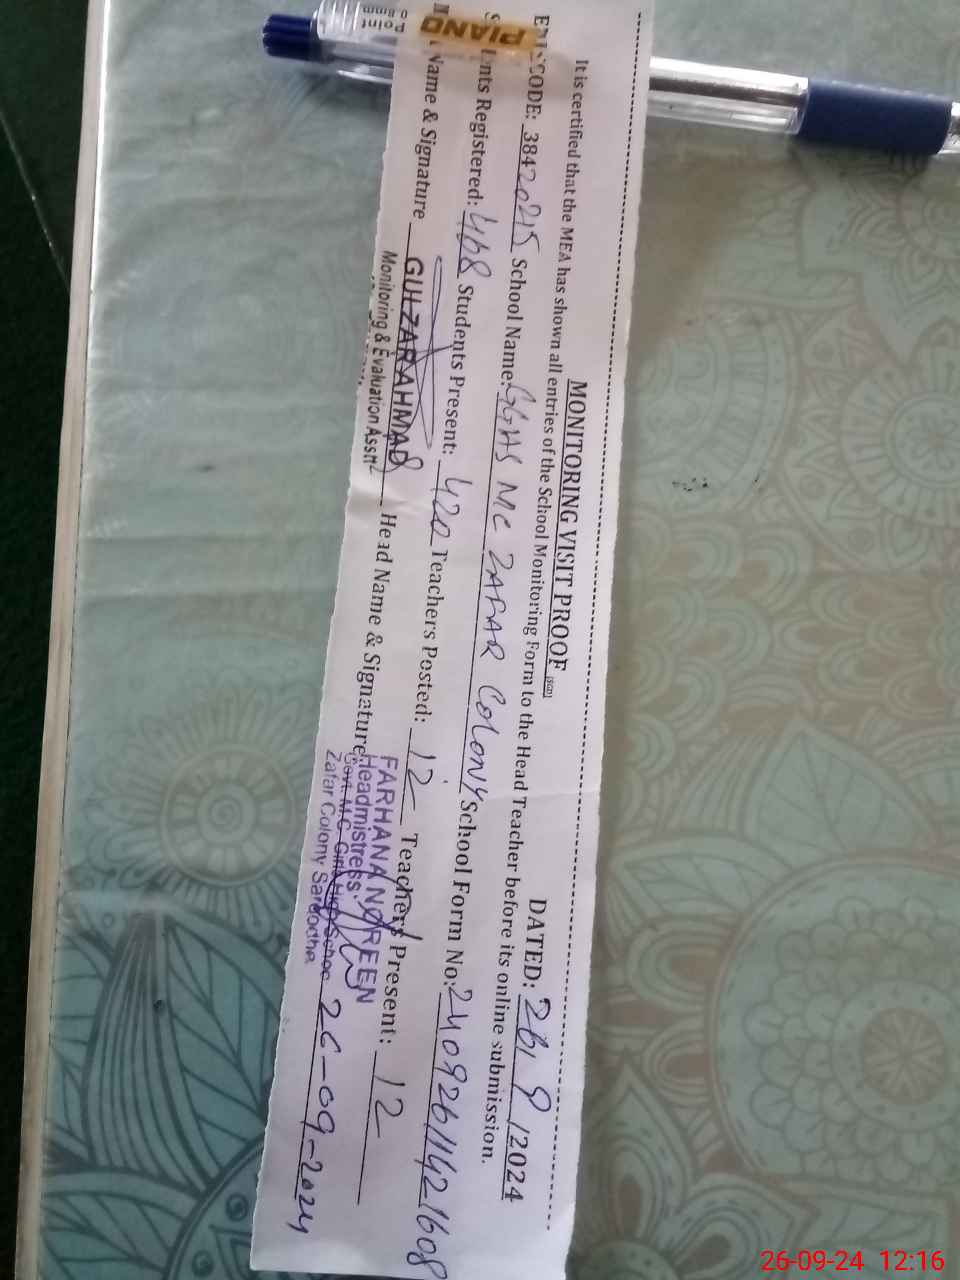 MONITORING VISIT PROOF
DATED: 26/ 9 /2024
It is certified that the MEA has shown all entries of the School Monitoring Form to the Head Teacher before its online submission.
CODE: 38420215 School Name: GGHS MC ZAFAR COLONY School Form No: 24092611421608
Registered: 468 Students Present: 420 Teachers Posted: 12 Teachers Present: 12
Name & Signature GULZAR AHMAD Head Name & Signature FARHANA NOREEN
Monitoring & Evaluation Asstt
Headmistress.
Govt. M.C Girls High School 26-09-2024
Zafar Colony Sargodha
PIANO
26-09-24 12:16